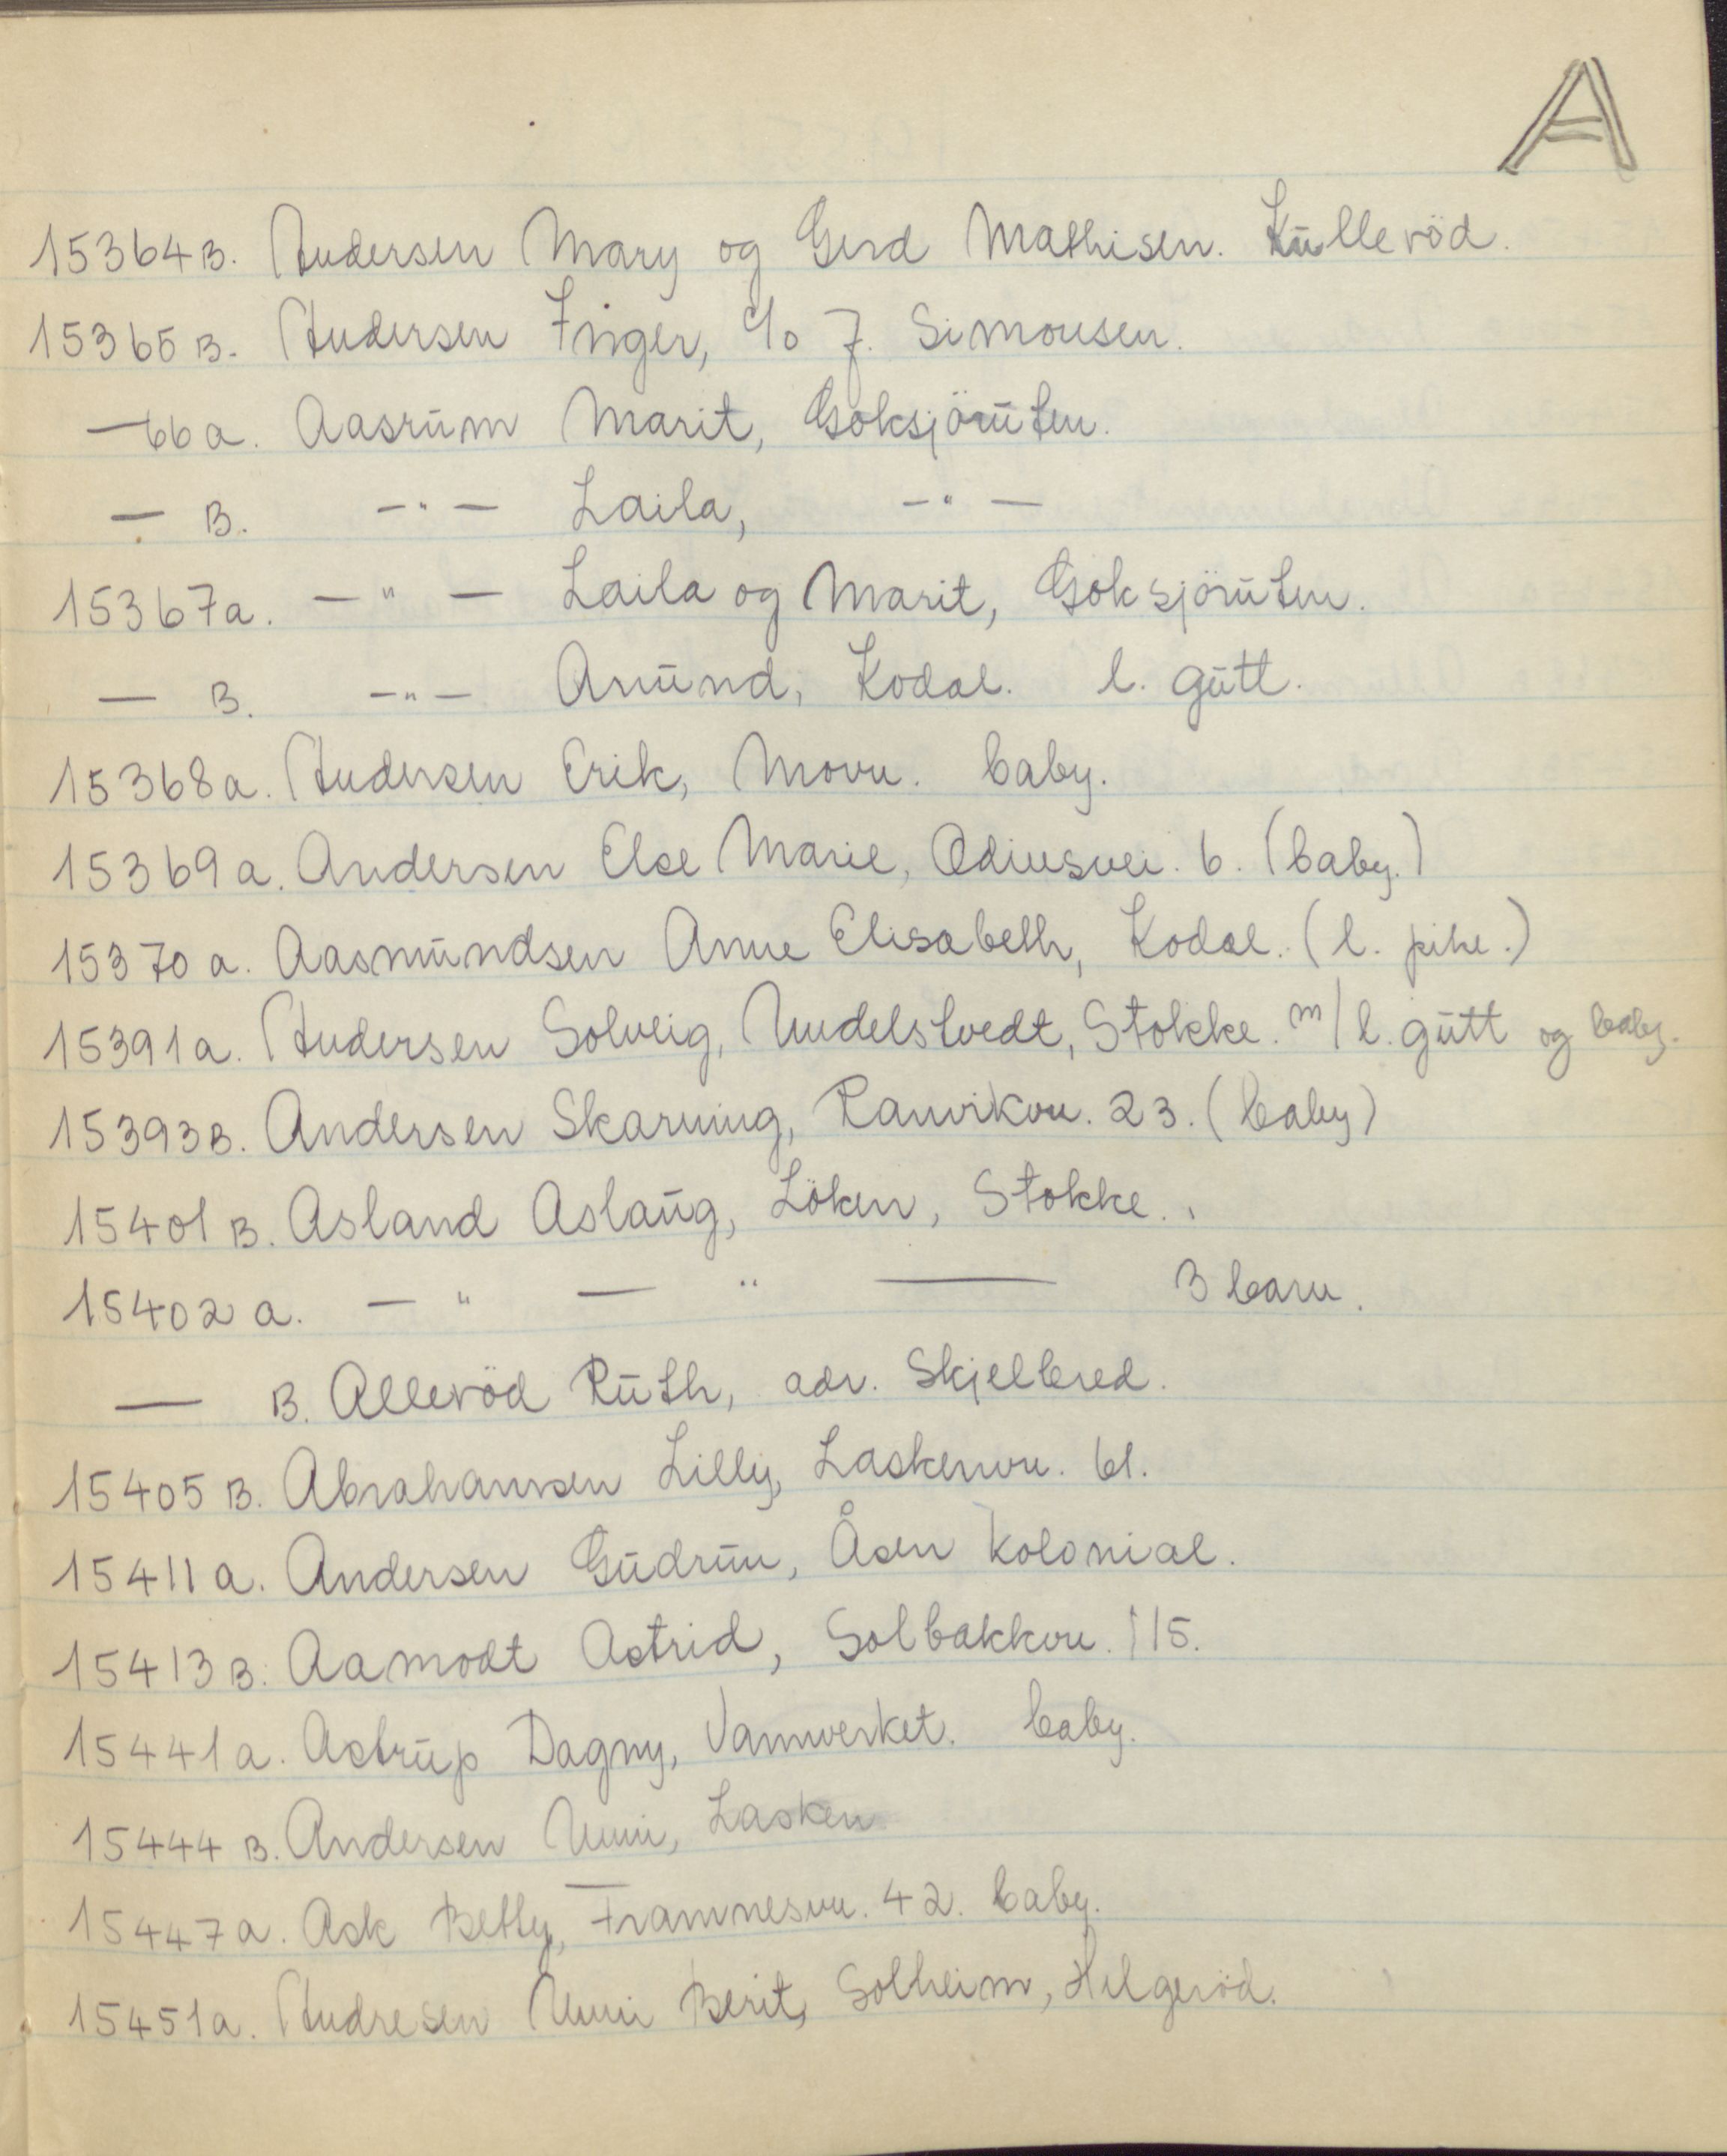 A
15364B. Andersen Mary og Gerd Mathisen. Kulleröd.
15365B. Andersen Inger, c/o J. Simonsen.
—66a. Aasrum Marit, Goksjöruten.
— B. —"— Laila, —"—
15367a. —"— Laila og Marit, Goksjöruten.
— B. —"— Amund, Kodal. l. gutt.
15368a. Andersen Erik, Movn. baby.
15369a. Andersen Else Marie, Odinsvei. 6. (baby.)
15370a. Aasmundsen Anne Elisabeth, Kodal. (l. pike.)
15391a. Andersen Solveig, Unnelstvedt, Stokke. m/l. gutt og baby.
15393B. Andersen Skarning, Ranvikvn. 23. (baby)
15401B. Asland Aslaug, Löken, Stokke.
15402a. — " — " — 3 barn.
— B. Alleröd Ruth, adr. Skjellered.
15405B. Abrahamsen Lilly, Laskenvn. 61.
15411a. Andersen Gudrun, Åsen kolonial.
15413B. Aamodt Astrid, Solbakkvn. 115.
15441a. Astrup Dagny, Vannverket. baby.
15444B. Andersen Unni, Lasken
15447a. Ask Betty, Framnesvn. 42. baby.
15451a. Andresen Unni Berit, Solheim, Helgeröd.